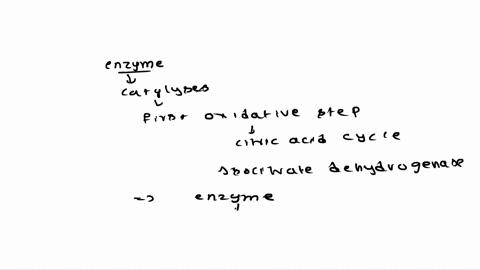 enzyme
catylyses
first oxidative step
citric acid cycle
isocitrate dehydrogenase
=> enzyme